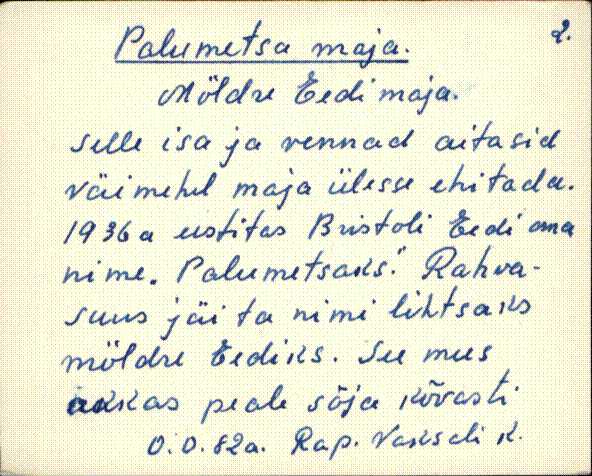 2.
Palumetsa maja.
Möldre Eedi maja.
Selle isa ja vennad aitasid
väimehel maja ülesse ehitada.
1936a eestitas Bristoli Eedi oma
nime. Palumetsaks." Rahva-
suus jäi ta nimi lihtsaks
möldre Eediks. See mus
akkas peale sõja kõvasti
0.0.82a. Rap. Vaksali k.